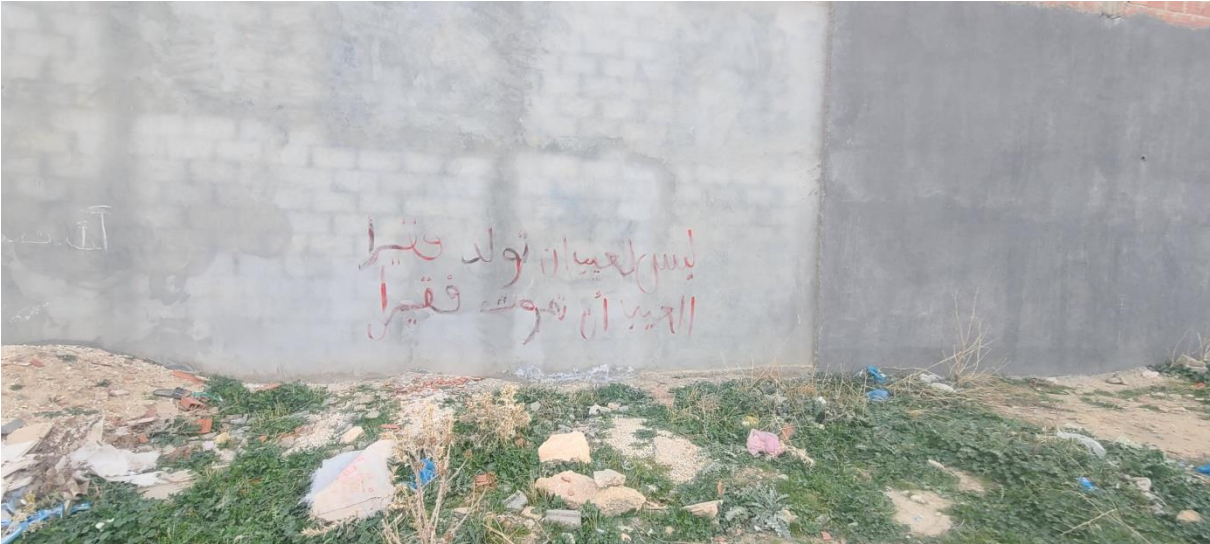 ليس لعيب ان تولد فقيرا
العيب أن تموت فقيرا